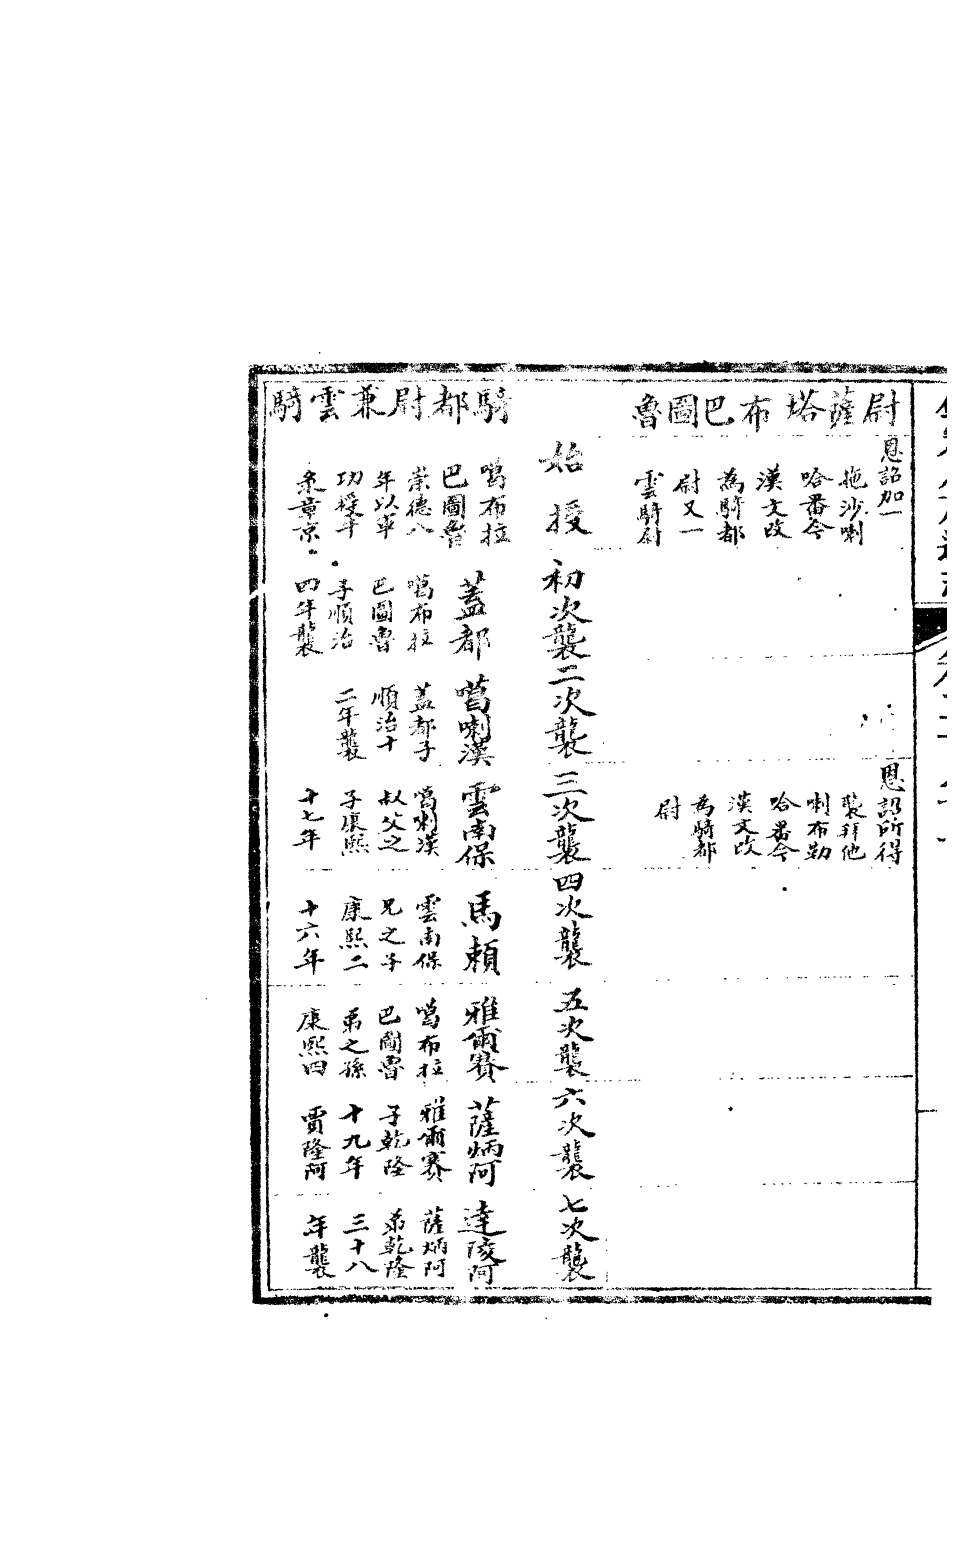 尉薩塔布巴圖魯
恩詔加一
拖沙喇
哈番今
漢文改
為騎都
尉又一
雲騎尉
恩詔所得
襲拜他
喇布勒
哈番今
漢文改
為騎都
尉
始授
初次襲
二次襲
三次襲
四次襲
五次襲
六次襲
七次襲
騎都尉兼雲騎
噶布拉
巴圖魯
崇德八
年以軍
功授牛
彔章京
蓋都
噶布拉
巴圖魯
子順治
四年襲
噶喇漢
蓋都子
順治十
二年襲
雲南保
噶喇漢
叔父之
子康熙
十七年
馬頼
雲南保
兄之子
康熙二
十六年
雅爾賽
噶布拉
巴圖魯
弟之孫
康熙四
薩炳阿
雅爾賽
子乾隆
十九年
賈隆阿
達陵阿
薩炳阿
弟乾隆
三十八
年襲